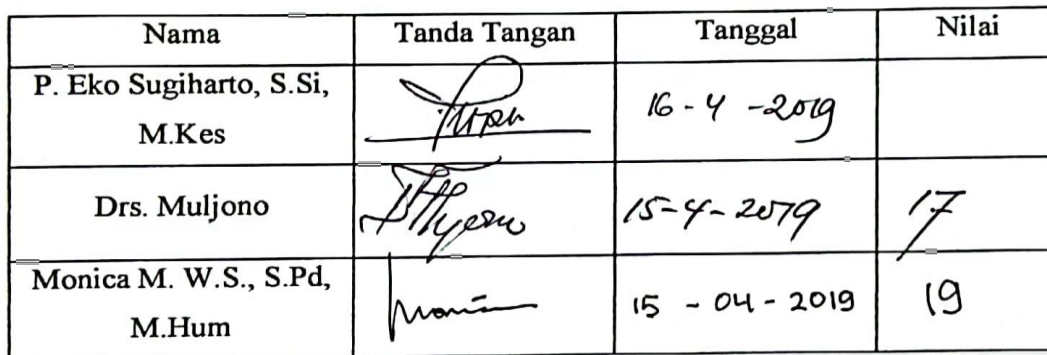 Nama Tanda Tangan Tanggal Nilai
P. Eko Sugiharto, S.Si,
M.Kes 16 - 4 - 2019
Drs. Muljono 15-4-2019 17
Monica M. W.S., S.Pd,
M.Hum 15 - 04 - 2019 19